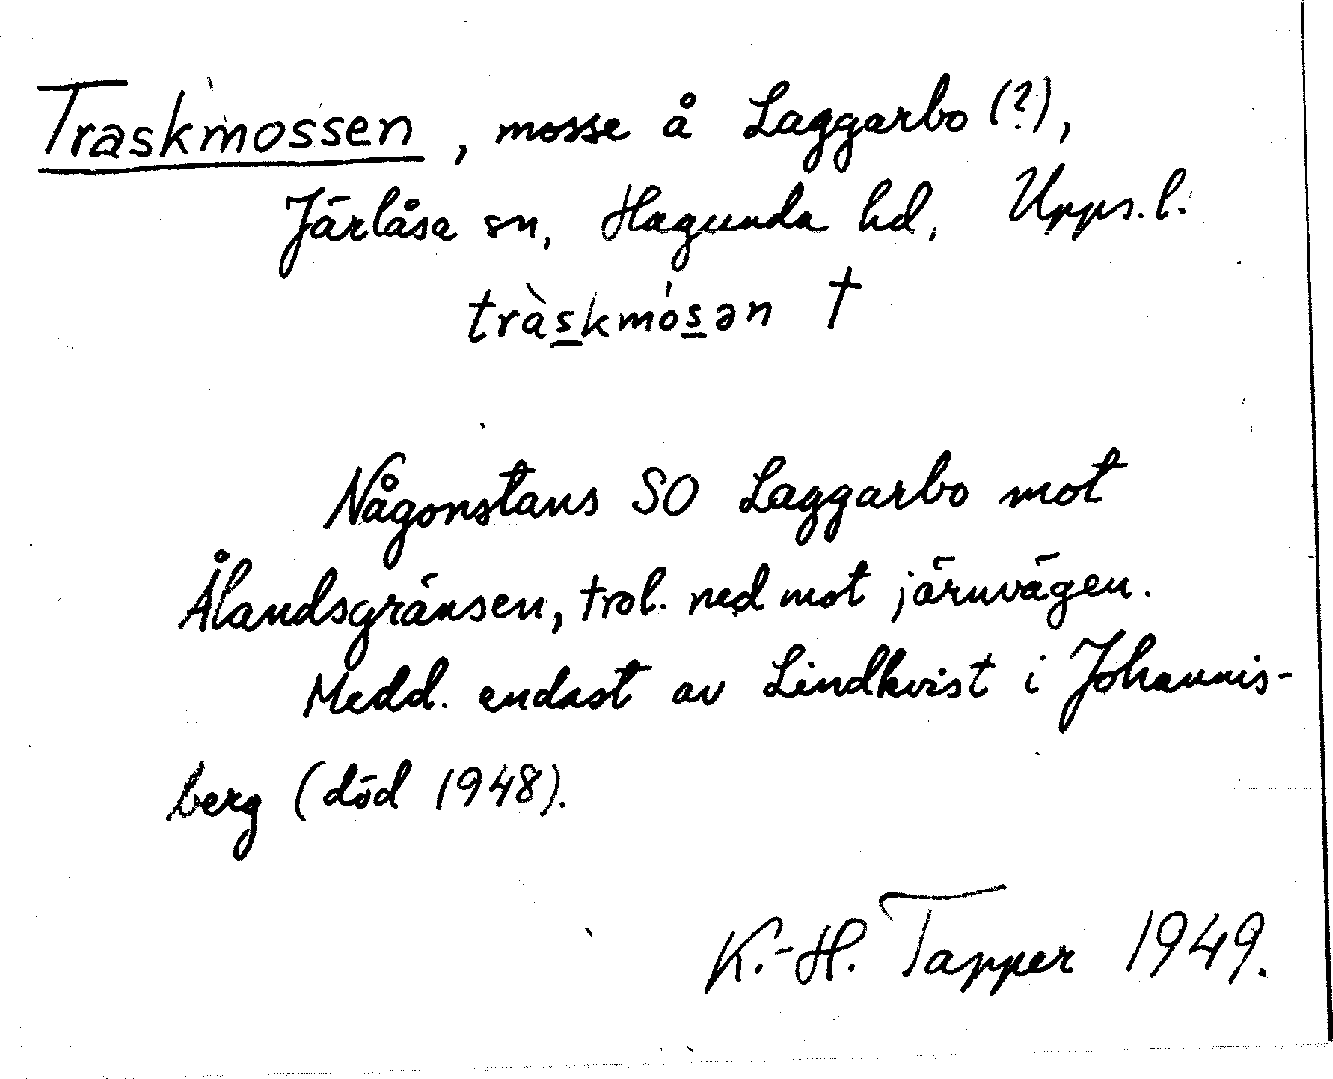 Traskmossen, mosse å Laggarbo (?),
Järlåsa sn, Hagunda hd, Upps. l.
tràs̲kmós̲ən †
Någonstans SO Laggarbo mot
Ålandsgränsen, trol. ned mot järnvägen.
Medd. endast av Lindkvist i Johannis-
berg (död 1948).
K.-H. Tapper 1949.